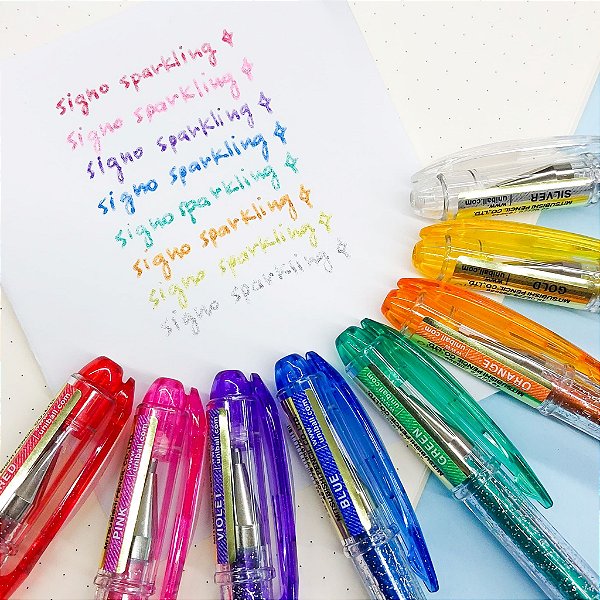 signo sparkling
signo sparkling
signo sparkling
signo sparkling
signo sparkling
signo sparkling
signo sparkling
signo sparkling
MITSUBISHI PENCIL CO.,LTD.
www.uniball.com
SILVER
MITSUBISHI PENCIL CO.,LTD.
uniball.com
GOLD
uniball.com
ORANGE
uniball.com
GREEN
uniball.com
BLUE
uniball.com
VIOLET
uniball.com
PINK
uniball.com
RED